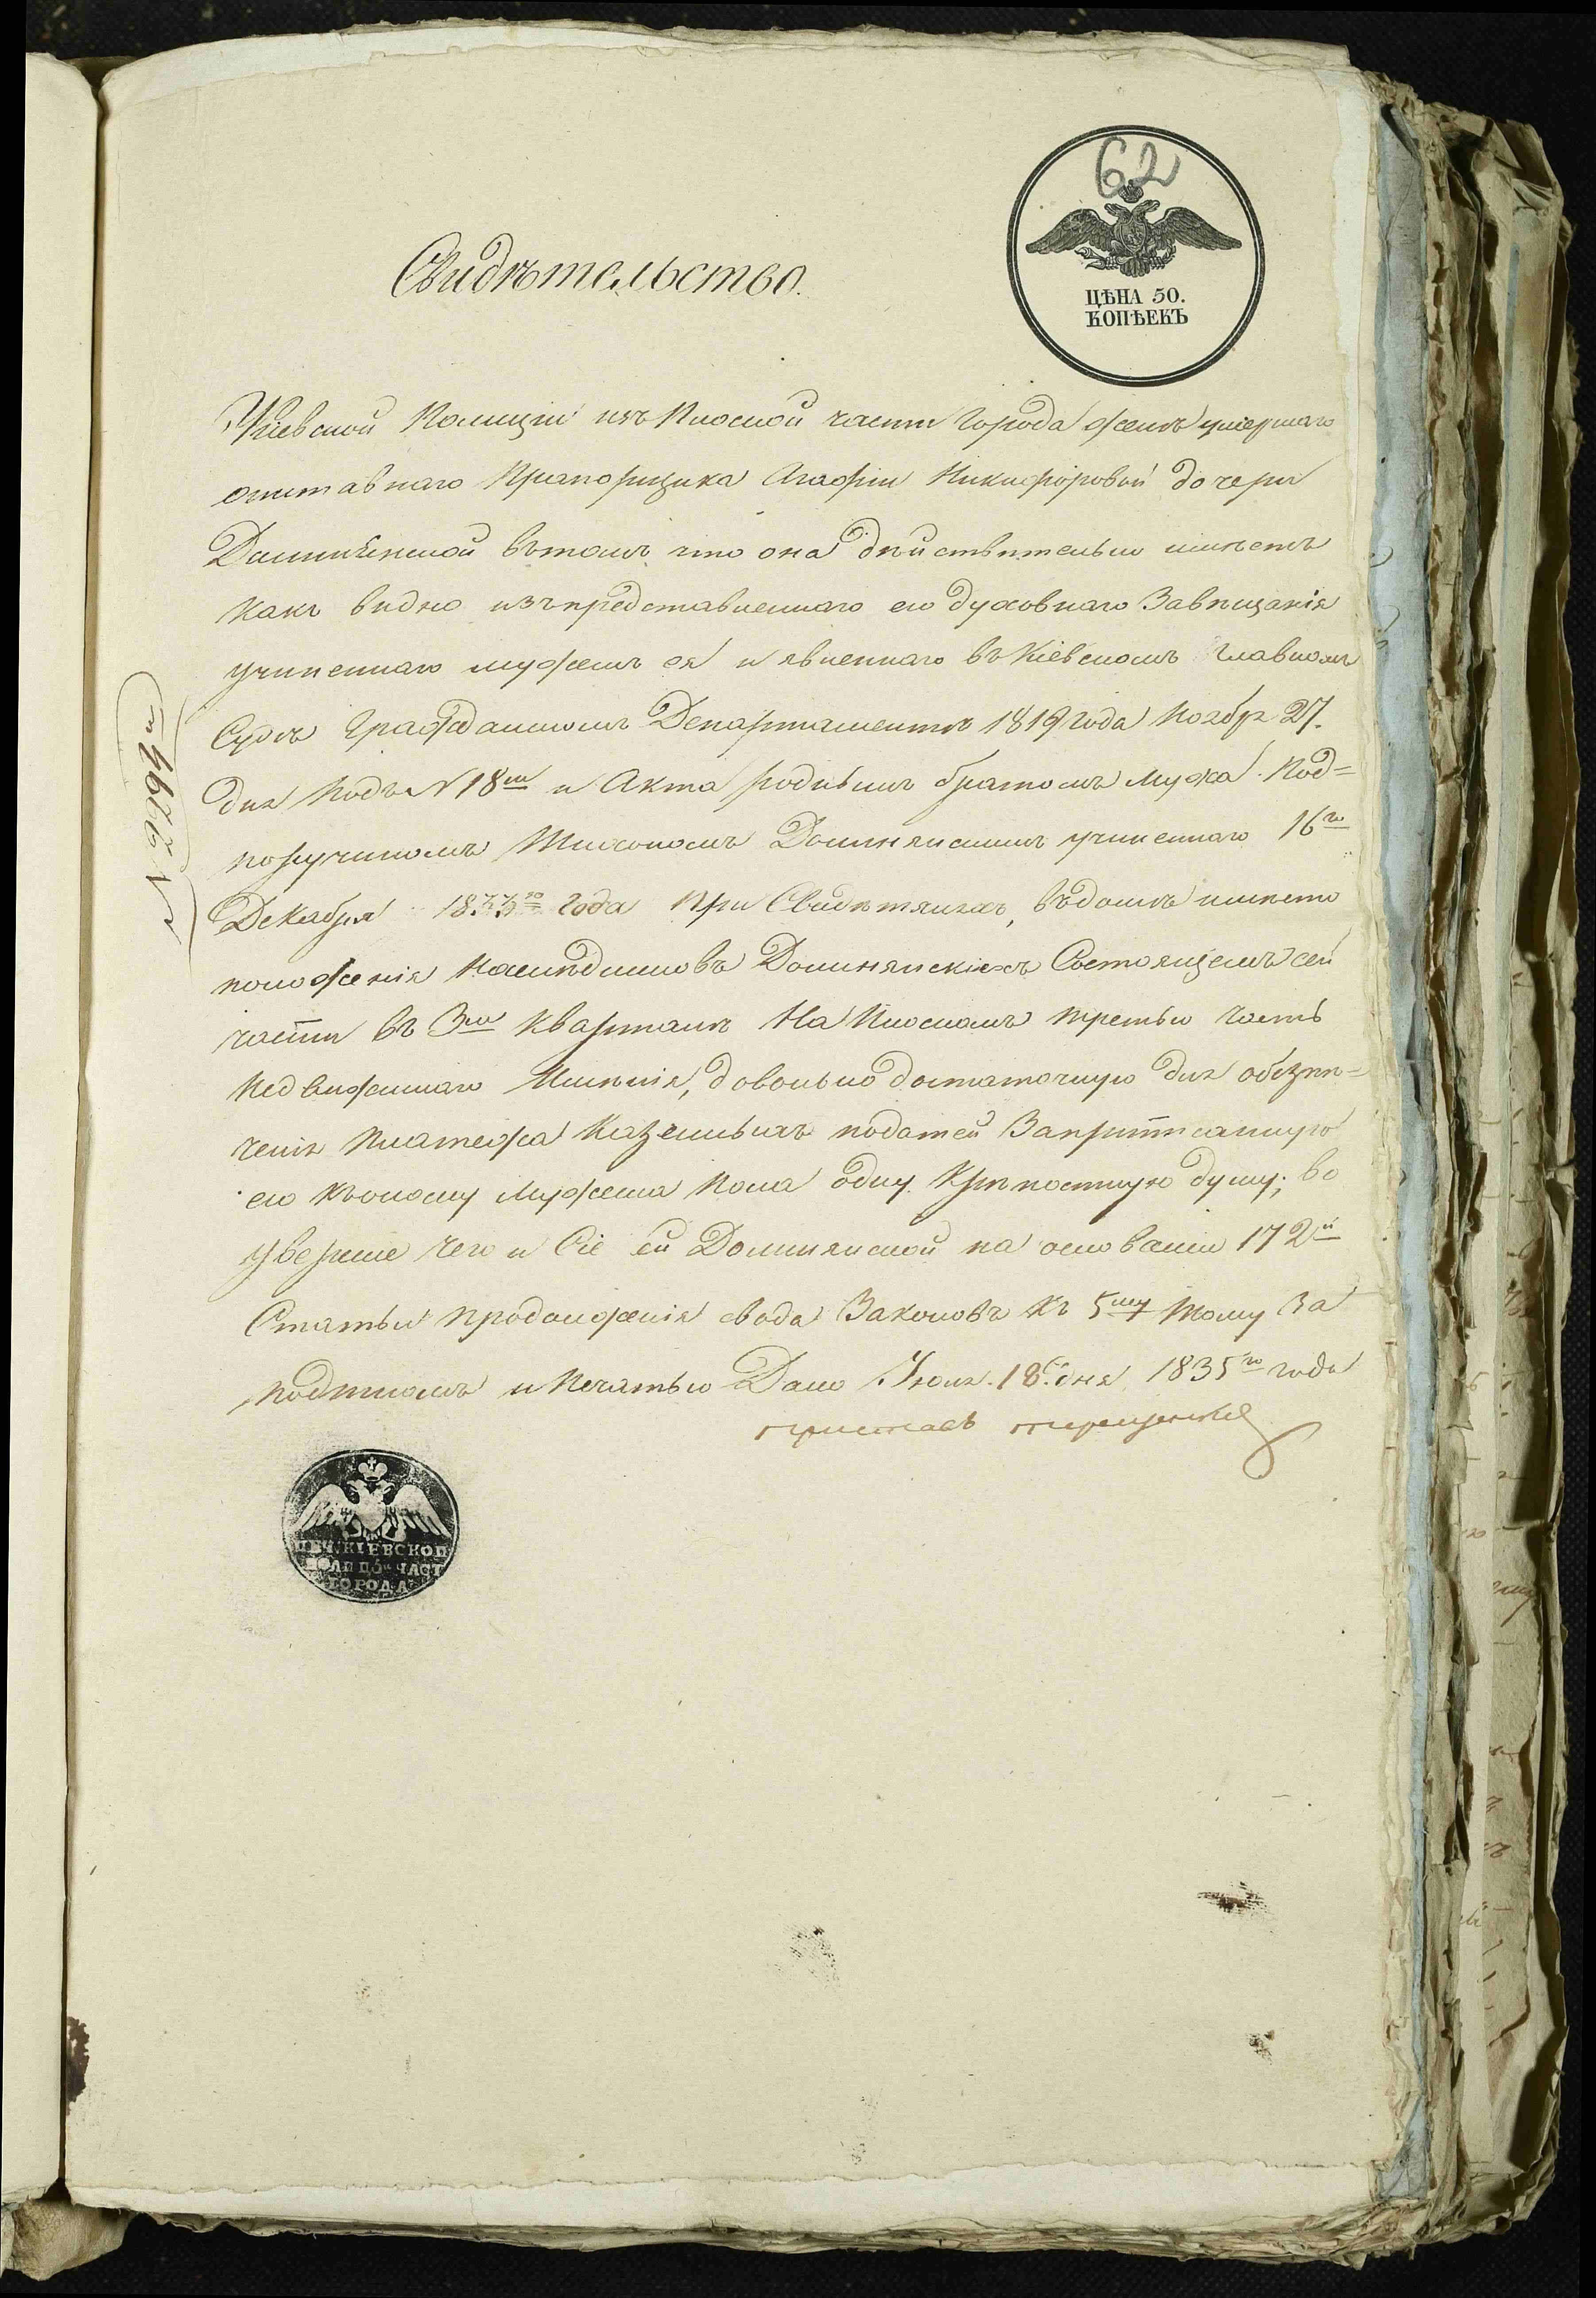 62
ЦѢНА 50.
КОПѢЕКЪ
Свидѣтельство.
Кіевской Полиціи изъ Плоской части Города женѣ умершаго
отставнаго Прапорщика Агафіи Никифоровой дочери
въ томъ что она дѣйствительно имѣетъ
какъ видно изъ представленнаго ею духовнаго Завѣщанія
учиненнаго мужемъ ея и явленнаго въ Кіевскомъ Главномъ
Судѣ Гражданскомъ Департаментѣ 1819 года Ноябр 27.
дня Подъ N 18мъ и Акта роднымъ братомъ мужа Под=
поручикомъ Тихономъ Долинянскимъ учиненнаго 16го
Декабря 1833го Года При Свидѣтеляхъ, въ домѣ
положенія наслѣдниковъ Долинянскихъ Состоящемъ сей
части въ 3мъ кварталѣ На Плоскомъ третью часть
недвижимаго Имѣнія, довольно достаточную для обезпѣ=
ченія платежа Казенныхъ податей За приписанную
ею къ оному мужеска пола одну крѣпостную душу; во
увереніе чего и Сіе ей Долинянской на основаніи 172й
Статьи продолженія свода Законовъ къ 5му Тому За
подписомъ и Печатью Дано Іюля 18 дня 1835го года
приставъ Терещенко
N 2794й
ПЕЧ. КІЕВСКОЙ
ПОЛ. ПО ЧАСТ
ГОРОДА